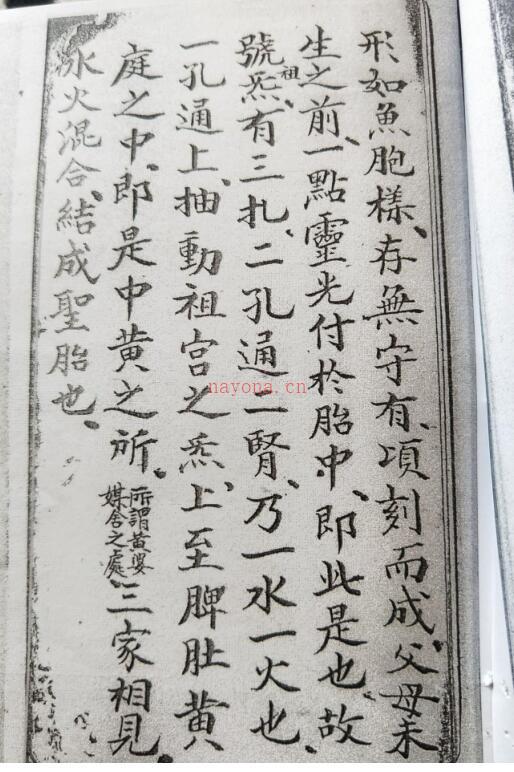 形如魚胞樣、存無守有、項刻而成、父母未
生之前、一點靈光付於胎中、即此是也、故
號祖炁、有三扎、二孔通二腎、乃一水一火也、
一孔通上、抽動祖宫之炁、上至脾肚黄
庭之中、即是中黄之所、所謂黄婆媒舍之處、三家相見、
水火混合、結成聖胎也、
nayona.cn